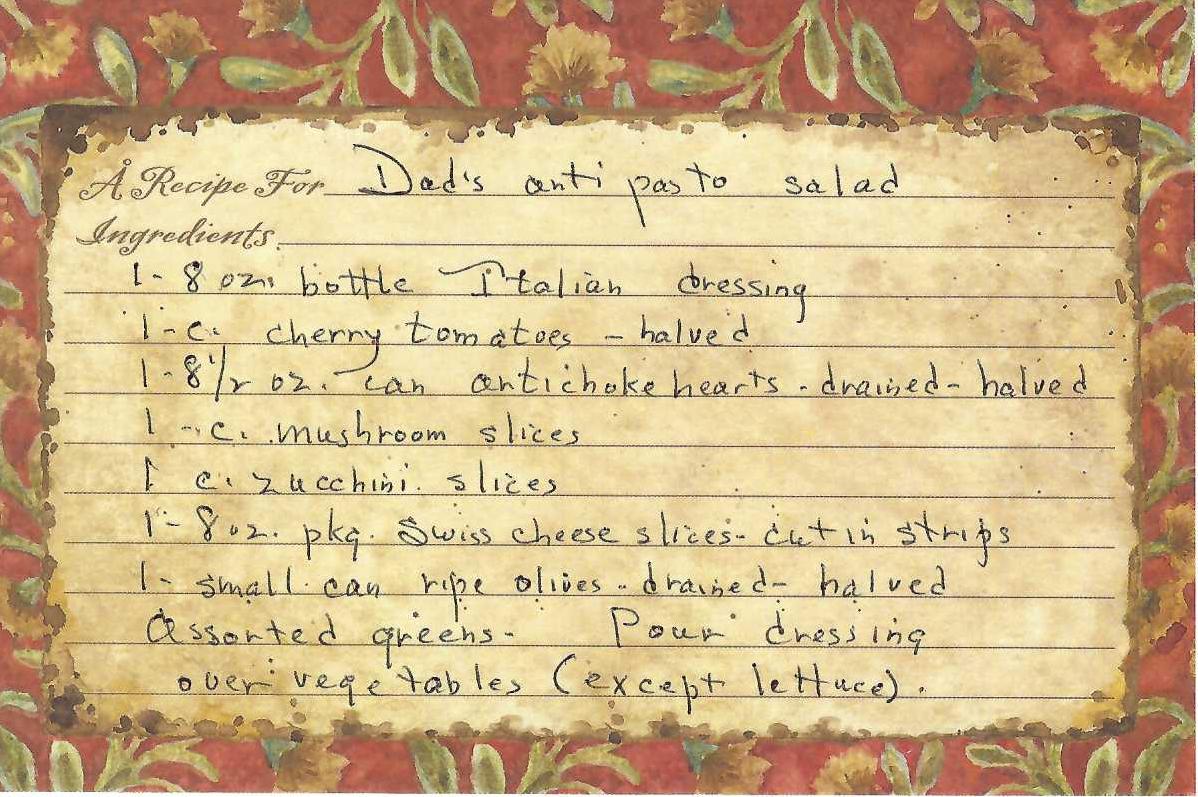 A Recipe For Dad's anti pasto salad
Ingredients
1- 8 oz. bottle Italian dressing
1-c. cherry tomatoes - halved
1-8 1/2 oz. can antichoke hearts - drained - halved
1 - c. mushroom slices
1 c. zucchini slices
1- 8 oz. pkg. Swiss cheese slices - cut in strips
1- small can ripe olives - drained - halved
Assorted greens - Pour dressing
over vegetables (except lettuce).